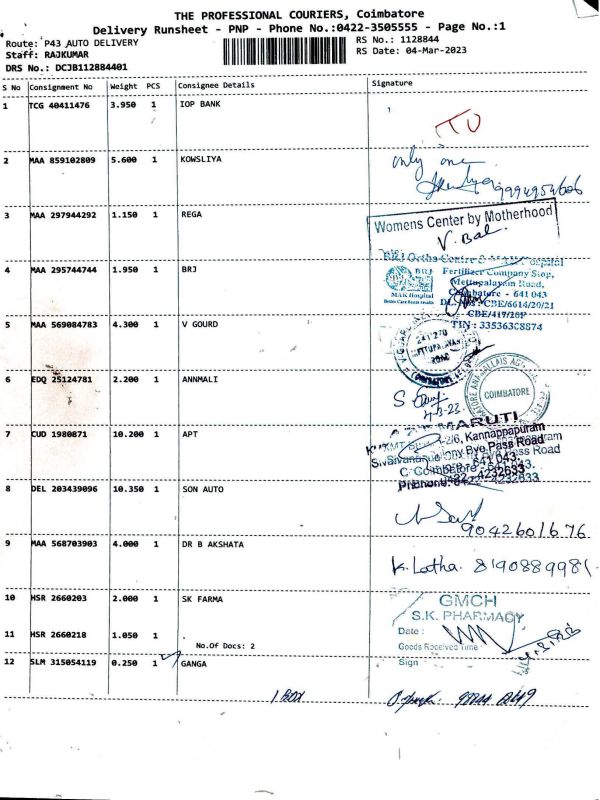 THE PROFESSIONAL COURIERS, Coimbatore
Delivery Runsheet - PNP - Phone No.:0422-3505555 - Page No.:1
Route: P43 AUTO DELIVERY
RS No.: 1128844
Staff: RAJKUMAR
RS Date: 04-Mar-2023
DRS No.: DCJB112884401
S No Consignment No Weight PCS Consignee Details Signature
1 TCG 40411476 3.950 1 IOP BANK
2 MAA 859102809 5.600 1 KOWSLIYA
only one
9994954606
3 MAA 297944292 1.150 1 REGA
Womens Center by Motherhood
V. Bal
4 MAA 295744744 1.950 1 BRJ
BRJ Ortho Centre & MAK Hospital
BRJ
MAK Hospital
Fertilizer Company Stop,
Mettupalayam Road,
Coimbatore - 641 043
CBE/6614/20/21
CBE/417/20F
TIN : 33536308874
5 MAA 569084783 4.300 1 V GOURD
6 EDQ 25124781 2.200 1 ANNMALI
COIMBATORE
7 CUD 1980871 10.200 1 APT
MARUTI
Kannappapuram
Bye Pass Road
641 043
8 DEL 203439096 10.350 1 SON AUTO
9042601676
9 MAA 568703903 4.000 1 DR B AKSHATA
K. Latha. 8190889981
10 HSR 2660203 2.000 1 SK FARMA
GMCH
S.K. PHARMACY
11 HSR 2660218 1.050 1
Date :
No.Of Docs: 2
Goods Received Time
12 SLM 315054119 0.250 1 GANGA
Sign
1 BOX